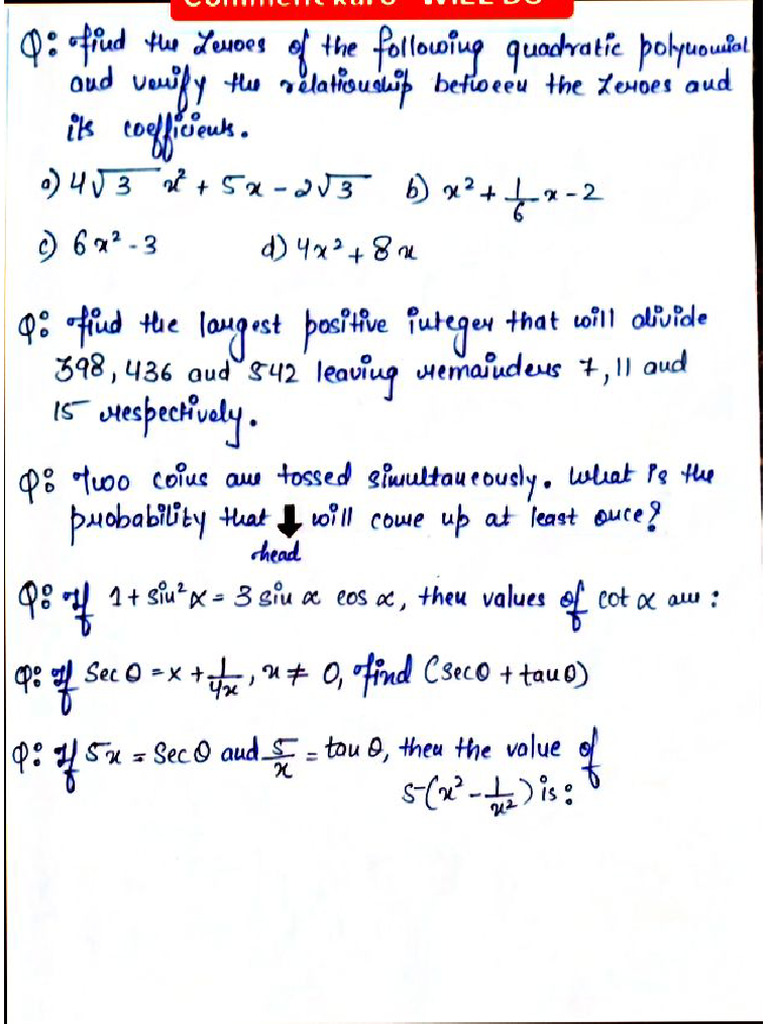 Comment karo "WILL DO"
Q: find the zeroes of the following quadratic polynomial
and verify the relationship between the zeroes and
its coefficients.
a) 4√3 x² + 5x - 2√3 b) x² + 1/6 x - 2
c) 6x² - 3 d) 4x² + 8x
Q: find the largest positive integer that will divide
398, 436 and 542 leaving remainders 7, 11 and
15 respectively.
Q: Two coins are tossed simultaneously. What is the
probability that ⬇ will come up at least once?
head
Q: If 1 + sin²α = 3 sin α cos α, then values of cot α are :
Q: If Sec θ = x + 1/4x, x ≠ 0, find (secθ + tanθ)
Q: If 5x = Sec θ and 5/x = tan θ, then the value of
5(x² - 1/x²) is :